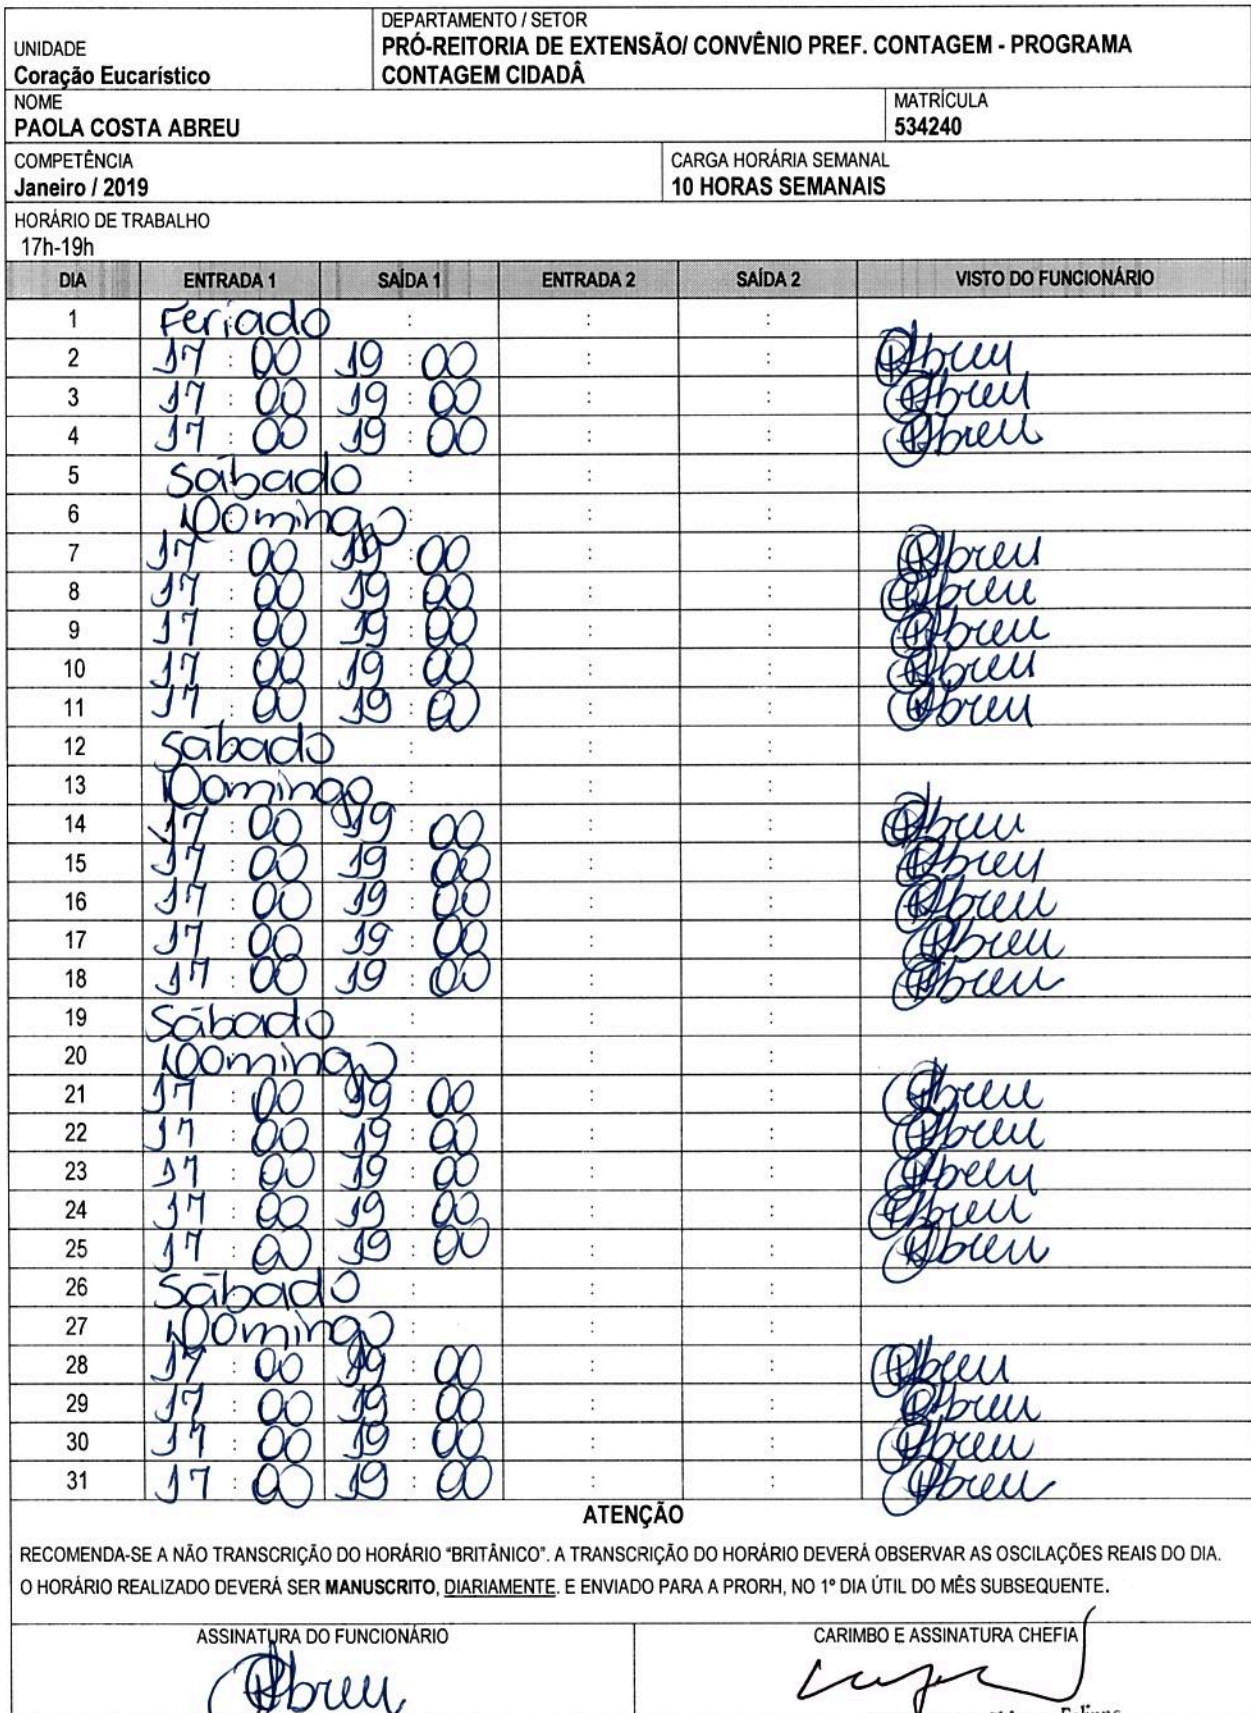 DEPARTAMENTO / SETOR
UNIDADE
PRÓ-REITORIA DE EXTENSÃO/ CONVÊNIO PREF. CONTAGEM - PROGRAMA
Coração Eucarístico
CONTAGEM CIDADÂ
NOME
MATRÍCULA
PAOLA COSTA ABREU
534240
COMPETÊNCIA
CARGA HORÁRIA SEMANAL
Janeiro / 2019
10 HORAS SEMANAIS
HORÁRIO DE TRABALHO
17h-19h
DIA ENTRADA 1 SAÍDA 1 ENTRADA 2 SAÍDA 2 VISTO DO FUNCIONÁRIO
1 Feriado : : :
2 17 : 00 19 : 00 : : Abreu
3 17 : 00 19 : 00 : : Abreu
4 17 : 00 19 : 00 : : Abreu
5 Sábado : : :
6 Domingo : : :
7 17 : 00 19 : 00 : : Abreu
8 17 : 00 19 : 00 : : Abreu
9 17 : 00 19 : 00 : : Abreu
10 17 : 00 19 : 00 : : Abreu
11 17 : 00 19 : 00 : : Abreu
12 Sábado : : :
13 Domingo : : :
14 17 : 00 19 : 00 : : Abreu
15 17 : 00 19 : 00 : : Abreu
16 17 : 00 19 : 00 : : Abreu
17 17 : 00 19 : 00 : : Abreu
18 17 : 00 19 : 00 : : Abreu
19 Sábado : : :
20 Domingo : : :
21 17 : 00 19 : 00 : : Abreu
22 17 : 00 19 : 00 : : Abreu
23 17 : 00 19 : 00 : : Abreu
24 17 : 00 19 : 00 : : Abreu
25 17 : 00 19 : 00 : : Abreu
26 Sábado : : :
27 Domingo : : :
28 17 : 00 19 : 00 : : Abreu
29 17 : 00 19 : 00 : : Abreu
30 17 : 00 19 : 00 : : Abreu
31 17 : 00 19 : 00 : : Abreu
ATENÇÃO
RECOMENDA-SE A NÃO TRANSCRIÇÃO DO HORÁRIO "BRITÂNICO". A TRANSCRIÇÃO DO HORÁRIO DEVERÁ OBSERVAR AS OSCILAÇÕES REAIS DO DIA.
O HORÁRIO REALIZADO DEVERÁ SER MANUSCRITO, DIARIAMENTE. E ENVIADO PARA A PRORH, NO 1º DIA ÚTIL DO MÊS SUBSEQUENTE.
ASSINATURA DO FUNCIONÁRIO CARIMBO E ASSINATURA CHEFIA
Abreu